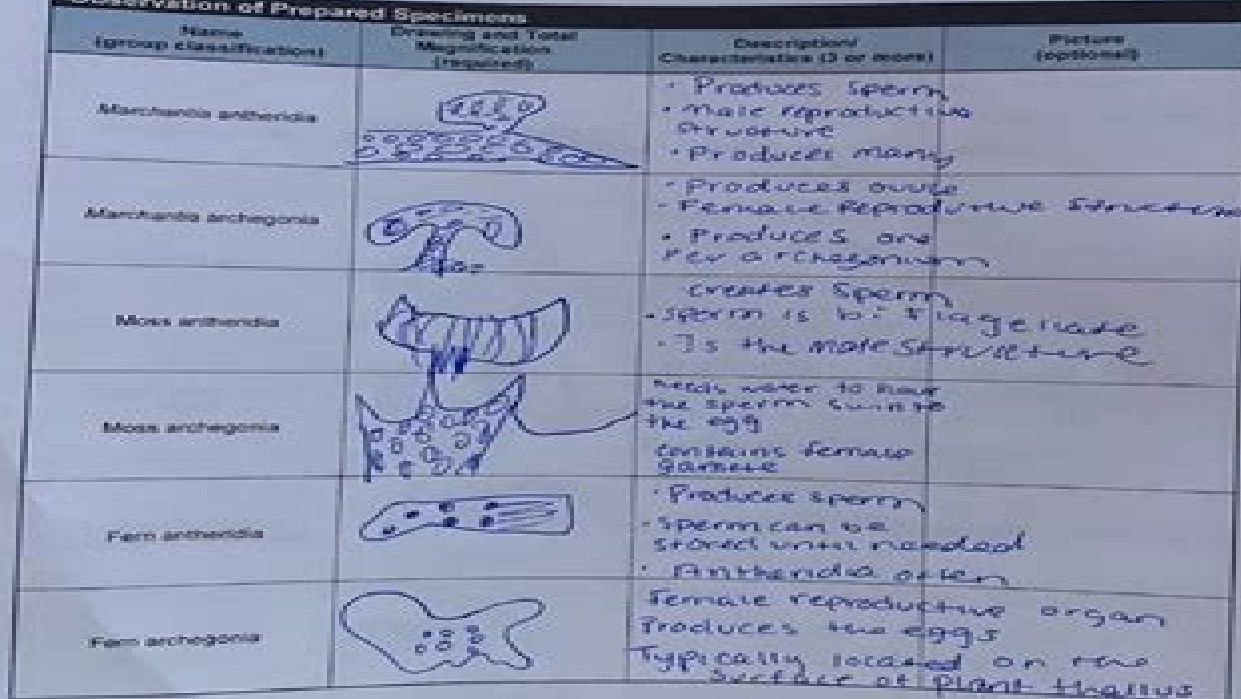 Observation of Prepared Specimons
Name
(group classification)
Drawing and Total
Magnification
(required)
Description/
Characteristics (3 or more)
Picture
(optional)
Marchantia antheridia
• Produces sperm
• male reproductive
structure
• Produces many
Marchantia archegonia
• Produces
- Female reproductive structure
• Produces one
Per archegonium
Moss antheridia
creates sperm
• sperm is bi flagellate
• Is the male structure
Moss archegonia
needs water to have
the sperm swim to
the egg
contains female
gamete
Fern antheridia
• Produces sperm
- sperm can be
stored until needed
• Antheridia often
Fern archegonia
female reproductive organ
Produces the eggs
Typically located on the
surface of plant thallus